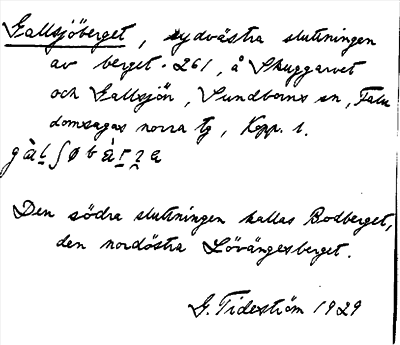 Gallsjöberget, sydvästra sluttningen
av berget · 261, å Skuggarvet
och Gallsjön, Sundborns sn, Falu
domsagas norra tg, Kopp. l.
Den södra sluttningen kallas Bodberget,
den nordöstra Lövängesberget.
G. Tideström 1929